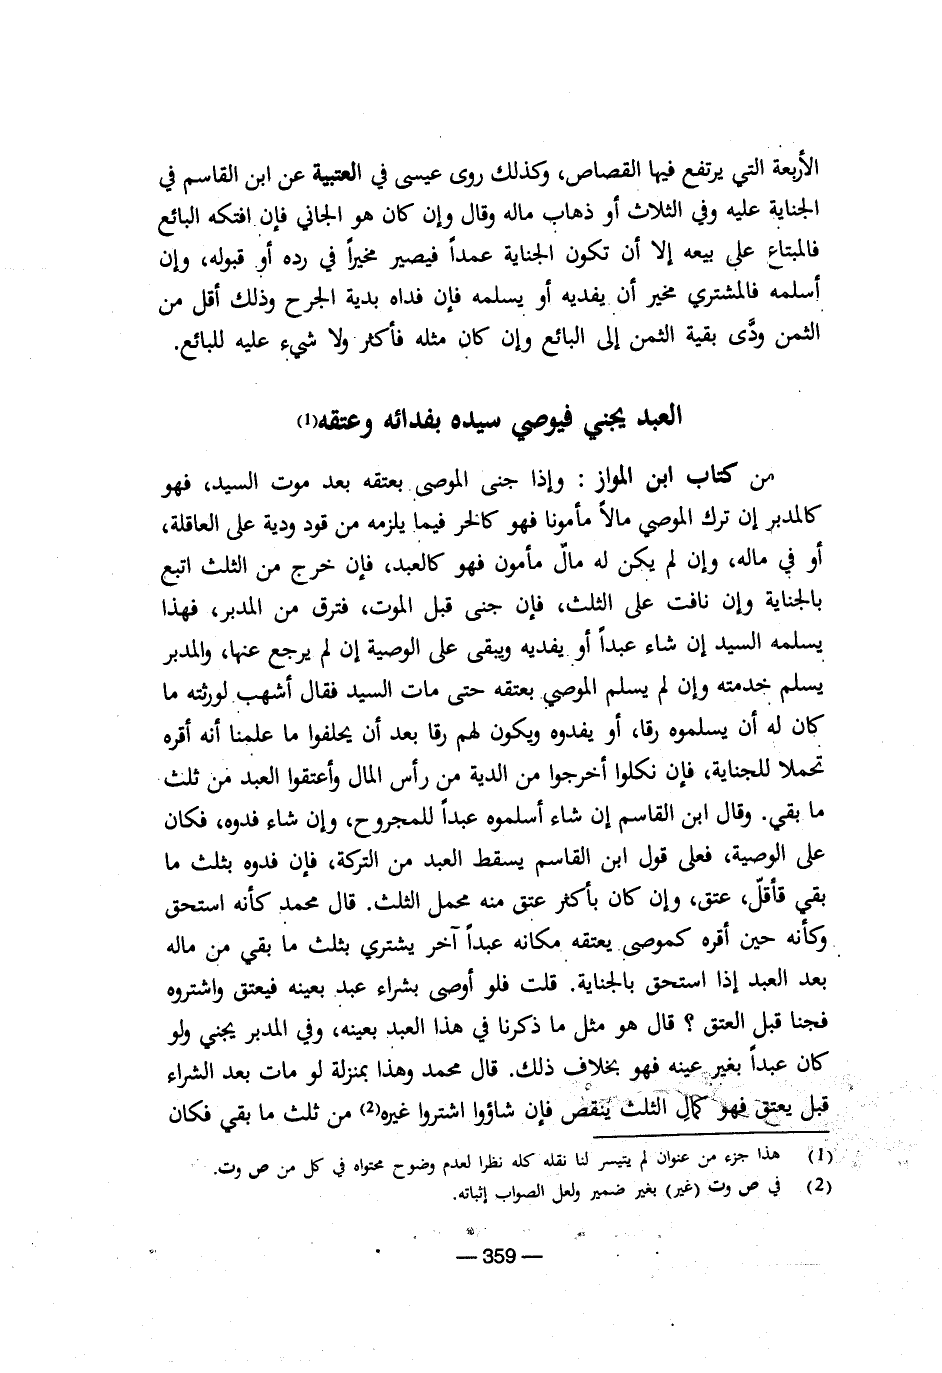 الأربعة التي يرتفع فيها القصاص، وكذلك روى عيسى في العتبية عن ابن القاسم في
الجناية عليه وفي الثلاث أو ذهاب ماله وقال وإن كان هو الجاني فإن افتكه البائع
فالمبتاع على بيعه إلا أن تكون الجناية عمداً فيصير مخيراً في رده أو قبوله، وإن
أسلمه فالمشتري مخير أن يفديه أو يسلمه فإن فداه بدية الجرح وذلك أقل من
الثمن ودَّى بقية الثمن إلى البائع وإن كان مثله فأكثر ولا شيء عليه للبائع.
العبد يجني فيوصي سيده بفدائه وعتقه(1)
من كتاب ابن المواز : وإذا جنى الموصى بعتقه بعد موت السيد، فهو
كالمدبر إن ترك الموصي مالاً مأمونا فهو كالحر فيما يلزمه من قود ودية على العاقلة،
أو في ماله، وإن لم يكن له مالٌ مأمون فهو كالعبد، فإن خرج من الثلث اتبع
بالجناية وإن نافت على الثلث، فإن جنى قبل الموت، فترق من المدبر، فهذا
يسلمه السيد إن شاء عبداً أو يفديه ويبقى على الوصية إن لم يرجع عنها، والمدبر
يسلم خدمته وإن لم يسلم الموصي بعتقه حتى مات السيد فقال أشهب لورثته ما
كان له أن يسلموه رقا، أو يفدوه ويكون لهم رقا بعد أن يحلفوا ما علمنا أنه أقره
تحملا للجناية، فإن نكلوا أخرجوا من الدية من رأس المال وأعتقوا العبد من ثلث
ما بقي. وقال ابن القاسم إن شاء أسلموه عبداً للمجروح، وإن شاء فدوه، فكان
على الوصية، فعلى قول ابن القاسم يسقط العبد من التركة، فإن فدوه بثلث ما
بقي قأقلّ، عتق، وإن كان بأكثر عتق منه محمل الثلث. قال محمد كأنه استحق
وكأنه حين أقره كموصى يعتقه مكانه عبداً آخر يشتري بثلث ما بقي من ماله
بعد العبد إذا استحق بالجناية. قلت فلو أوصى بشراء عبد بعينه فيعتق واشتروه
فجنا قبل العتق ؟ قال هو مثل ما ذكرنا في هذا العبد بعينه، وفي المدبر يجني ولو
كان عبداً بغير عينه فهو بخلاف ذلك. قال محمد وهذا بمنزلة لو مات بعد الشراء
قبل يعتق فهو كمالِ الثلث يَنقُص فإن شاؤوا اشتروا غيره(2) من ثلث ما بقي فكان
(1) هذا جزء من عنوان لم يتيسر لنا نقله كله نظرا لعدم وضوح محتواه في كل من ص وت.
(2) في ص وت (غير) بغير ضمير ولعل الصواب إثباته.
— 359 —